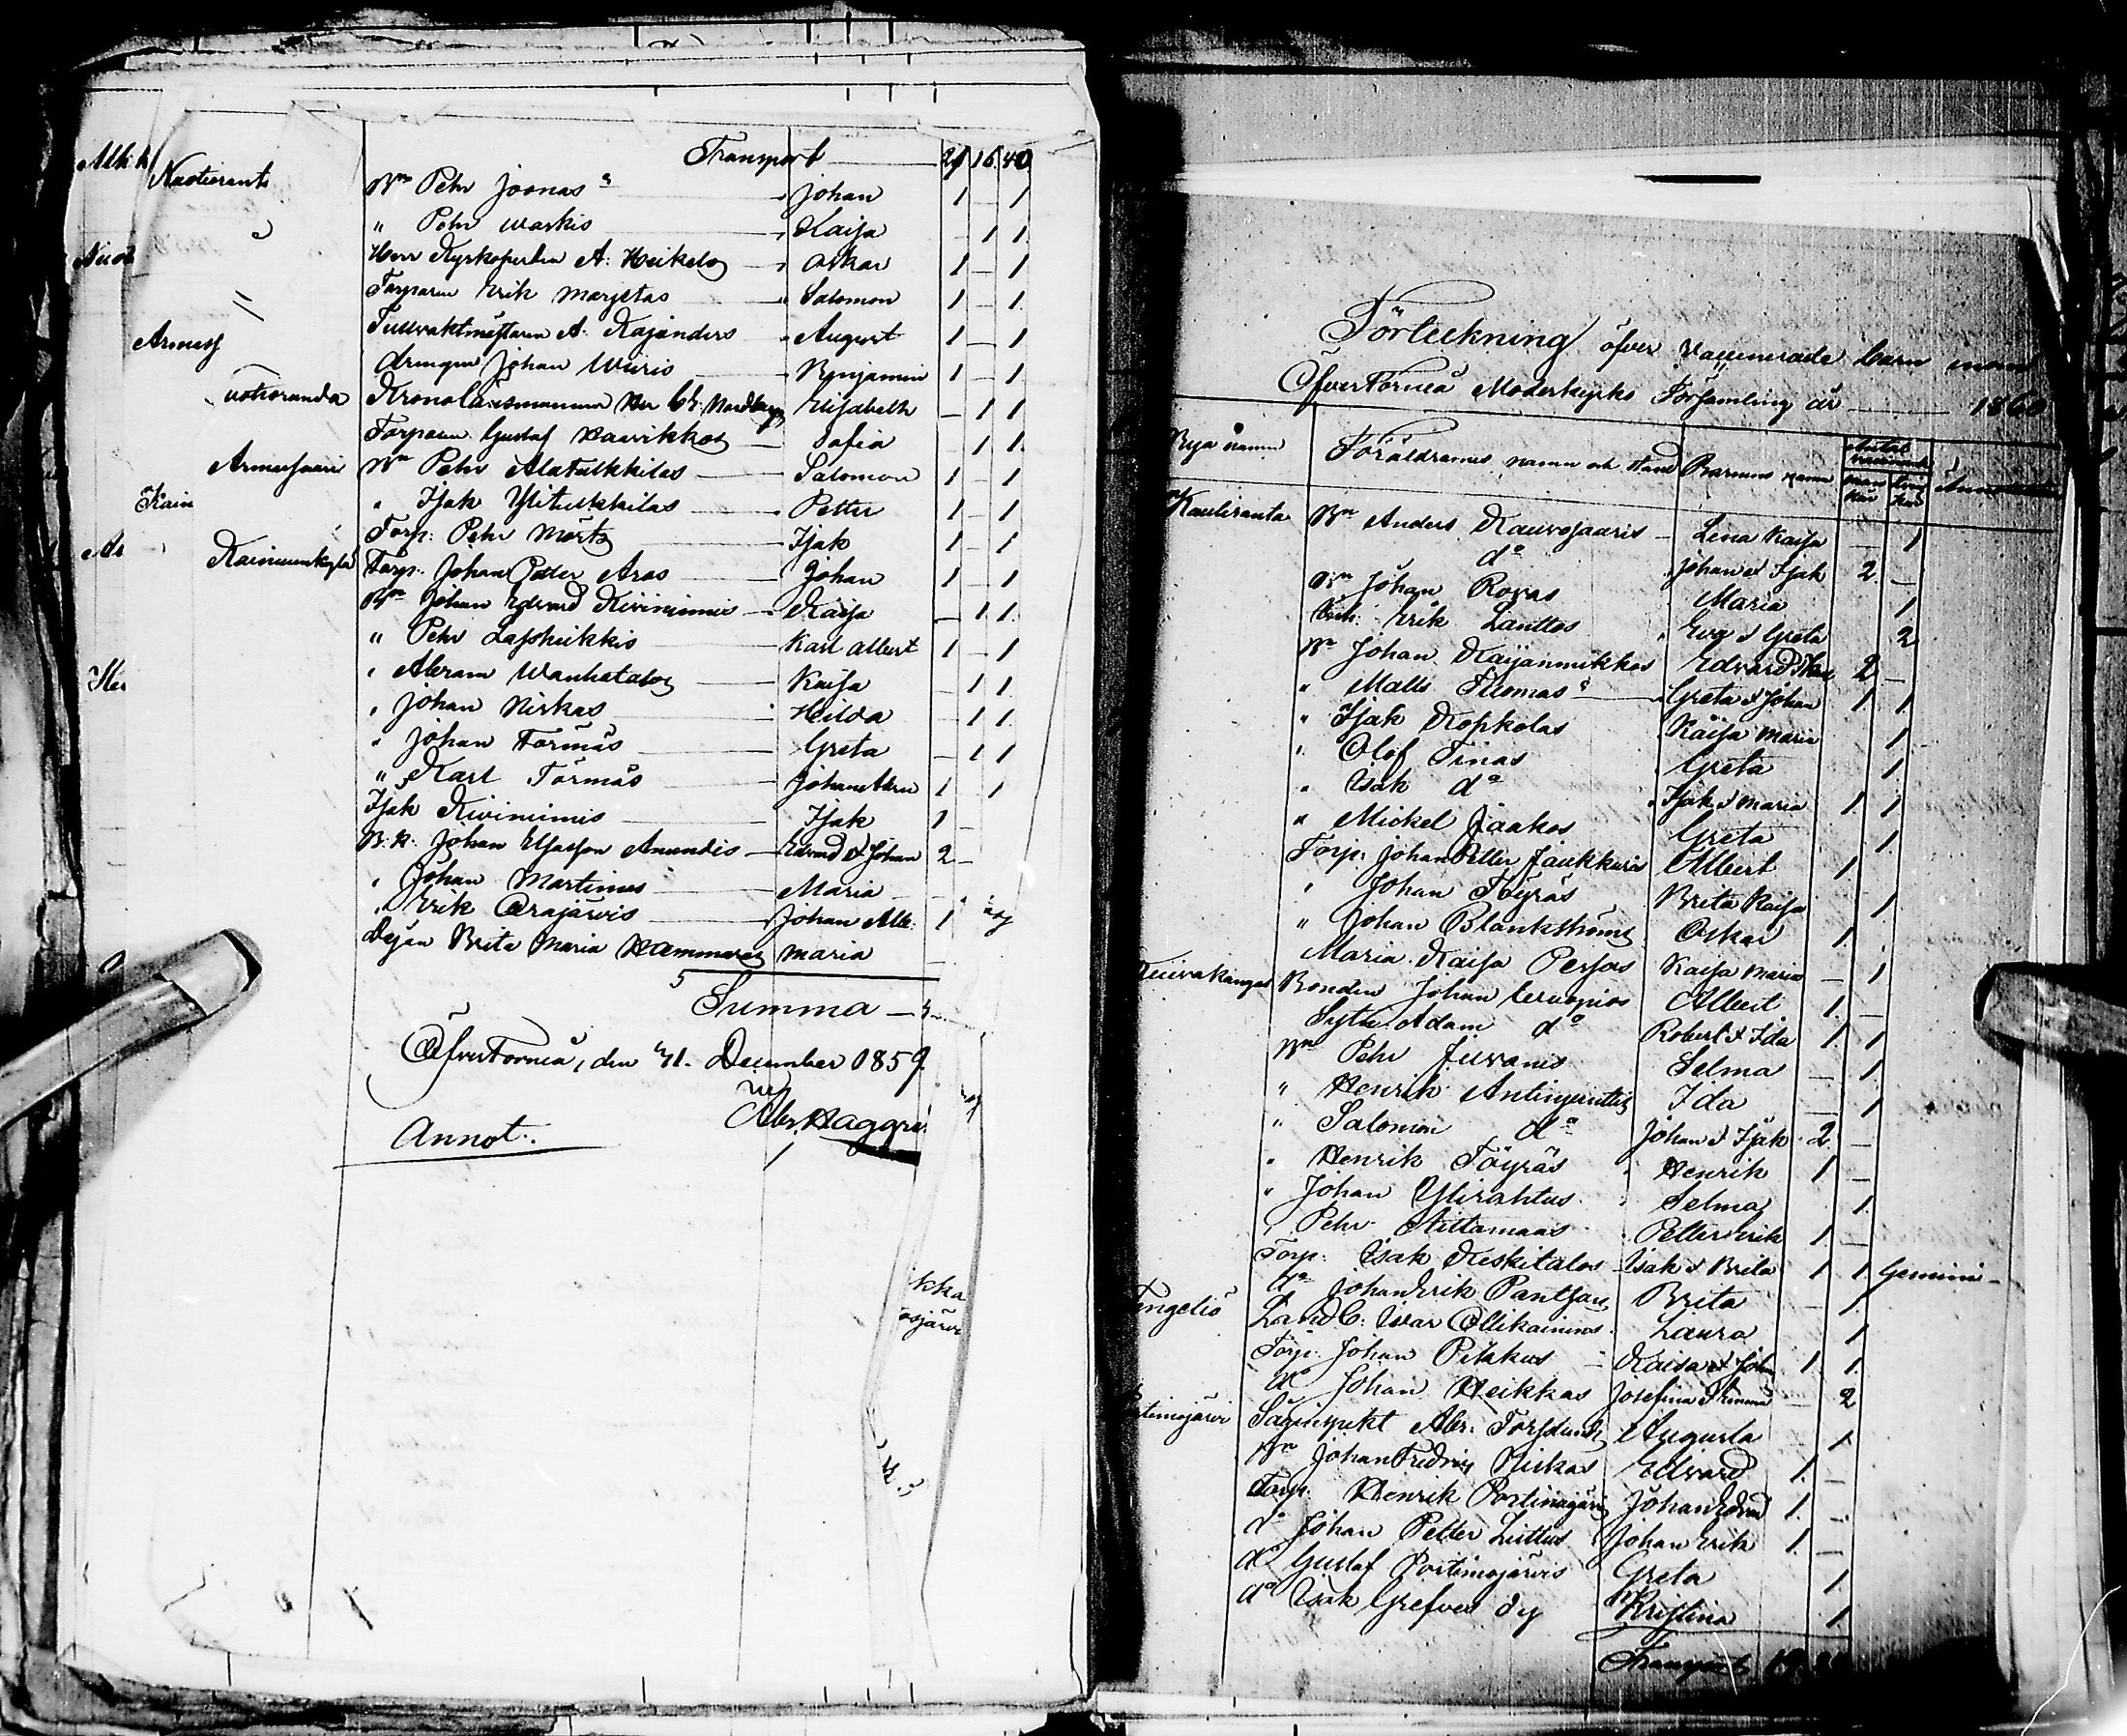 Transport 24 16 40
Nuotioranta Bn Pehr Joonas Johan 1 - 1
" " Pehr Markis Kaisa - 1 1
Herr Kyrkoherden A. Heikels Oskar 1 - 1
Torparen Erik Marjetas Salomon 1 - 1
Tullvaktmästaren A. Kajanders August 1 - 1
Armass Drengen Johan Wiiris Benjamin 1 - 1
uotioranda Kronolänsmannen Herr Nordbergs Elisabeth - 1 1
Torparen Gustaf Haavikkos Sofia 1 1
Armassaari Bn Pehr Alatulkkilas Salomon 1 - 1
" Isak Ylitulkkilas Petter 1 - 1
Torp: Pehr Mörts Isak 1 - 1
Kainuunkylä Torp. Johan Petter Aros Johan 1 - 1
Bn Johan Edvard Kiviniemis Kaisa - 1 1
" Pehr Lassheikkis Karl Albert 1 - 1
" Abram Wanhatalos Kaisa - 1 1
" Johan Niskas Hilda - 1 1
" Johan Törmäs Greta - 1 1
" Karl Törmäs Johan Abra 1 1
Isak Kiviniemis Isak 1 -
B.k. Johan Anundis Edvard & Johan 2 -
" Johan Martimus Maria
" Erik Orajärvis Johan Alb: 1
Pigan Brita Maria Hammaras Maria
Summa
Öfvertorneå, den 31. December 1859.
Annot.
kka
osjärvi
Förteckning öfver Vaccinerade barn inom
Öfvertorneå Moderkyrko Församling år 1860
Bya namn Föräldrarnes namn och stand Barnens namn Antal man kön kön
Kauliranta Bn Anders Kauvosaaris Lena Kaisa - 1
do Johan & Isak 2 -
Bn Johan Rovas Maria 1
Erik Lanttos Eva & Greta 2
Bn Johan Raijanmikkos Edvard 2 -
" Matts Tuomas Greta & Johan 1 1
" Isak Kopkolas Kaisa Maria 1
" Olof Tinas Greta 1
" Isak do Isak & Maria 1 1
" Mickel Jaakos Greta 1
Torp. Johan Petter Jaukkuris Albert 1
" Johan Töyräs Brita Kaisa 1
" Johan Blankströms Oskar 1
Maria Kaisa Persos Kaisa Maria - 1
Kuivakangas Bonden Johan Albert 1 -
Sytn. Adam do Robert & Ida 1 1
Bn Pehr Juvanis Selma - 1
" Henrik Antinjunttis Ida - 1
" Salomon do Johan & Isak 2 -
" Henrik Töyräs Henrik 1 -
" Johan Ylirahtus Selma 1
" Pehr Aittamaas Petter Erik 1 -
Torp. Isak Keskitalos Isak & Brita 1 1 Gemini
do Johan Erik Pantsars Brita - 1
engeliö Landb. Ivar Ollikainens Laura 1
Torp. Johan Pitkkus Kaisa & John 1 1
do Johan Heikkas Josefina & Emma - 2
rtimojärvi Abr. Forslunds Augusta 1
Bn Johan Fredrik Niskas Edvard 1 -
Torp. Henrik Portimojärvis Johan Edvard 1 -
do Johan Petter Luttus Johan Erik 1 -
do Gustaf Portimojärvis Greta 1
do Isak Grefves Kristina 1
Transport